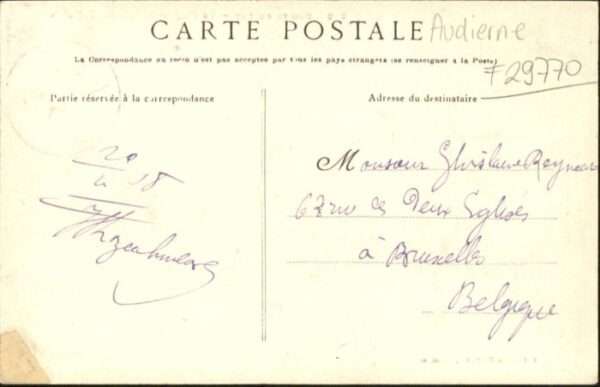 CARTE POSTALE Audierne
La Correspondance au recto n'est pas acceptée par tous les pays étrangers (se renseigner à la Poste)
F29770
Partie réservée à la correspondance
Adresse du destinataire
20
18
Monsieur Ghislain
63 rue des Deux Eglises
à Bruxelles
Belgique